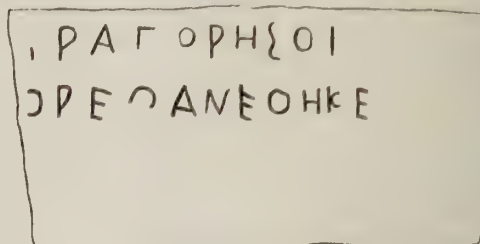 ΙΡΑΓΟΡΗΣΟΙ
ϽΡΕ∩ΑΝΕΟΗΚΕ